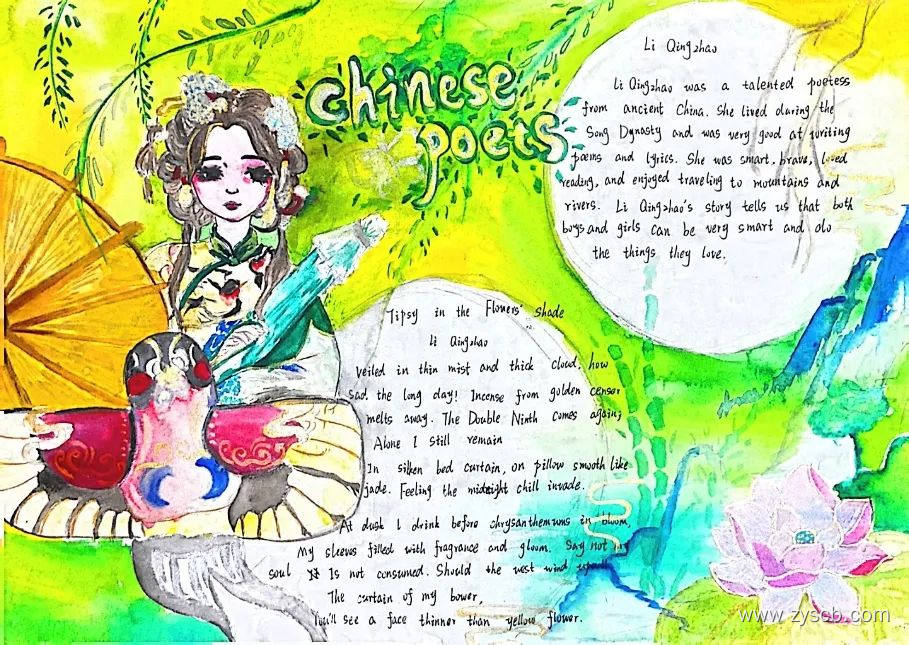 Chinese
poets
Li Qingzhao
Li Qingzhao was a talented poetess
from ancient China. She lived during the
Song Dynasty and was very good at writing
poems and lyrics. She was smart, brave, loved
reading, and enjoyed traveling to mountains and
rivers. Li Qingzhao's story tells us that both
boys and girls can be very smart and do
the things they love.
Tipsy in the Flowers' shade
Li Qingzhao
veiled in thin mist and thick cloud, how
sad the long day! Incense from golden censer
melts away. The Double Ninth comes again;
Alone I still remain
In silken bed curtain, on pillow smooth like
jade. Feeling the midnight chill invade.
At dusk I drink before chrysanthemums in bloom,
My sleeves filled with fragrance and gloom. Say not my
soul Is not consumed. Should the west wind
The curtain of my bower,
You'll see a face thinner than yellow flower.
www.zyscb.com